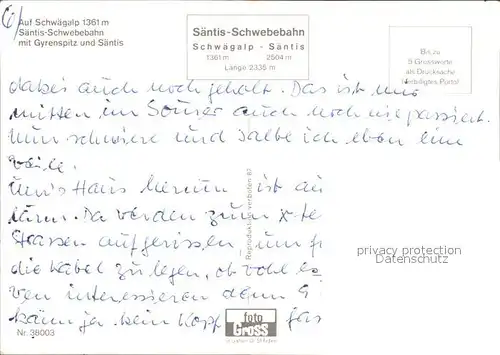 6)
Auf Schwägalp 1361 m
Säntis-Schwebebahn
mit Gyrenspitz und Säntis
Säntis-Schwebebahn
Schwägalp - Säntis
1361 m 2504 m
Länge 2335 m
Bis zu
5 Grussworte
als Drucksache
dabei auch noch geholt. Das ist uns
mitten im Sommer auch noch nie passiert.
Nun schmiere und salbe ich eben eine
weile.
Um's Haus herum ist
lärm. Da werden zum x-te
Strassen aufgerissen, um
die Kabel zu legen, ob wohl es
wen interessieren denn
kein Kopf
Reproduktion verboten 67
privacy protection
Datenschutz
foto
Gross
Nr. 38003